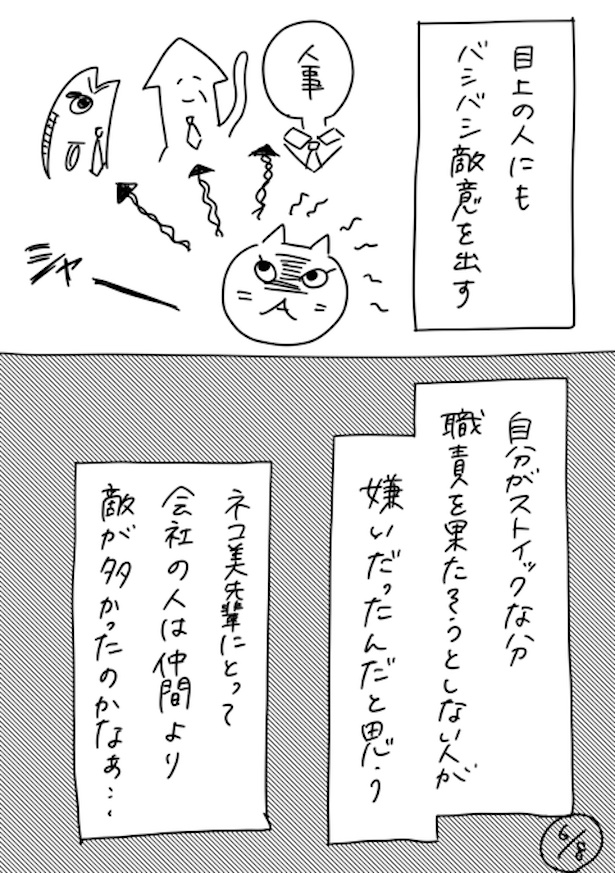 目上の人にも
バシバシ敵意を出す
人事
シャー
自分がストイックな分
職責を果たそうとしない人が
嫌いだったんだと思う
ネコ美先輩にとって
会社の人は仲間より
敵が多かったのかなぁ…
6/8